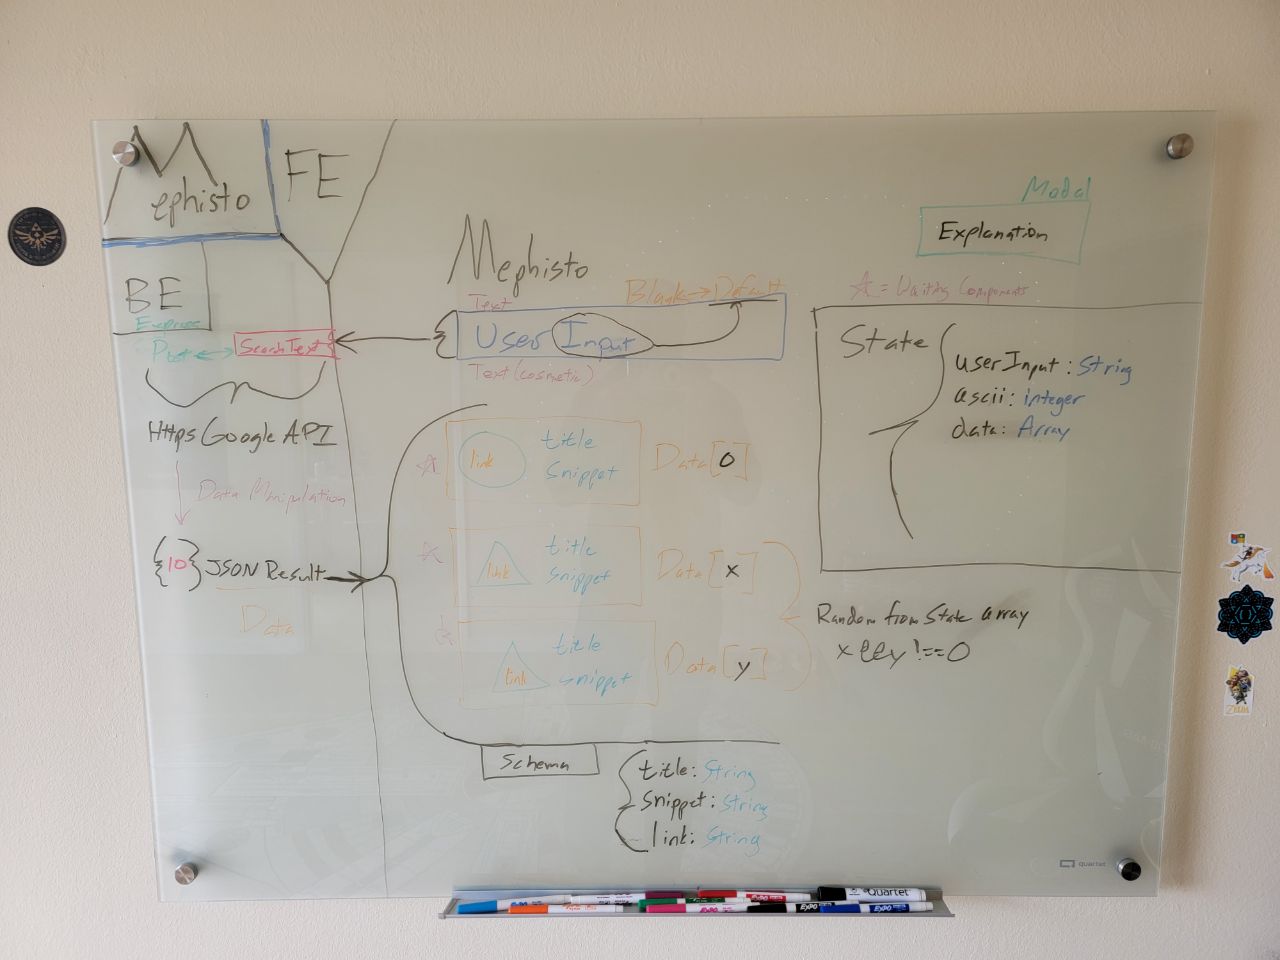 Mephisto
FE
BE
Express
Post
SearchText
Https Google API
Data Manipulation
{10} JSON Result
Data
Mephisto
Blank → Default
Text
User Input
Text (cosmetic)
link
title
snippet
Data[0]
link
title
snippet
Data[x]
link
title
snippet
Data[y]
Random from State array
x && y !== 0
Schema
title: String
snippet: String
link: String
Modal
Explanation
☆ = Waiting Components
State
userInput: String
ascii: integer
data: Array
quartet
Quartet
EXPO
EXPO
EXPO
ZELDA